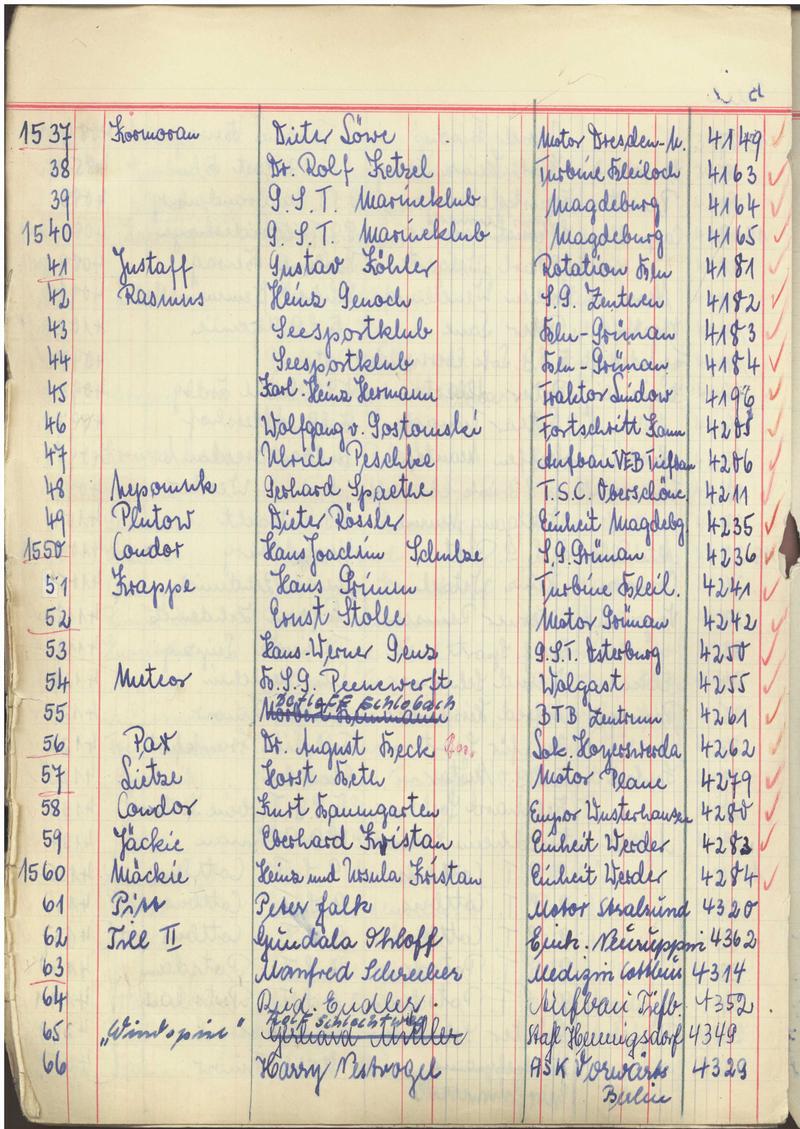 1537 Kormoran Dieter Löwe Motor Dresden-N. 4149
38 Dr. Rolf Ketzel Turbine Bleiloch 4163
39 G.S.T. Marineklub Magdeburg 4164
1540 G.S.T. Marineklub Magdeburg 4165
41 Justaff Gustav Köhler Rotation Bln 4181
42 Rasmus Heinz Genoch S.G. Zeuthen 4182
43 Seesportklub Bln-Grünau 4183
44 Seesportklub Bln-Grünau 4184
45 Karl-Heinz Hermann Traktor Lindow 4196
46 Wolfgang v. Gostomski Fortschritt 4205
47 Ulrich Peschke Aufbau VEB Tiefbau 4206
48 Nepomuk Gerhard Spaethe T.S.C. Oberschöne 4211
49 Plutow Dieter Rössler Einheit Magdebg. 4235
1550 Condor Hans Joachim Schulze S.G. Grünau 4236
51 Krappe Hans Grimm Turbine Bleil. 4241
52 Ernst Stolle Motor Grünau 4242
53 Hans-Werner Genz G.S.T. Osterburg 4250
54 Meteor B.S.G. Peenewerft Wolgast 4255
55 Detleff Schlobach BTB Zentrum 4261
56 Pax Dr. August Heck Lok. Hoyerswerda 4262
57 Lietze Horst Beth Motor Plaue 4279
58 Condor Kurt Baumgarten Empor Wusterhausen 4280
59 Jäckie Eberhard Kristan Einheit Werder 4283
1560 Mäckie Heinz und Ursula Kristan Einheit Werder 4284
61 Peter Falk Motor Stralsund 4320
62 Till II Gundala Ohloff Neuruppin 4362
63 Manfred Schreiber Medizin Cottbus 4314
64 Endler Aufbau Tiefb. 4352
65 „Windspiel" Rolf Schlachtweg Gerhard Müller Stahl Hennigsdorf 4349
66 Harry Nestvogel ASK Vorwärts 4329
Berlin